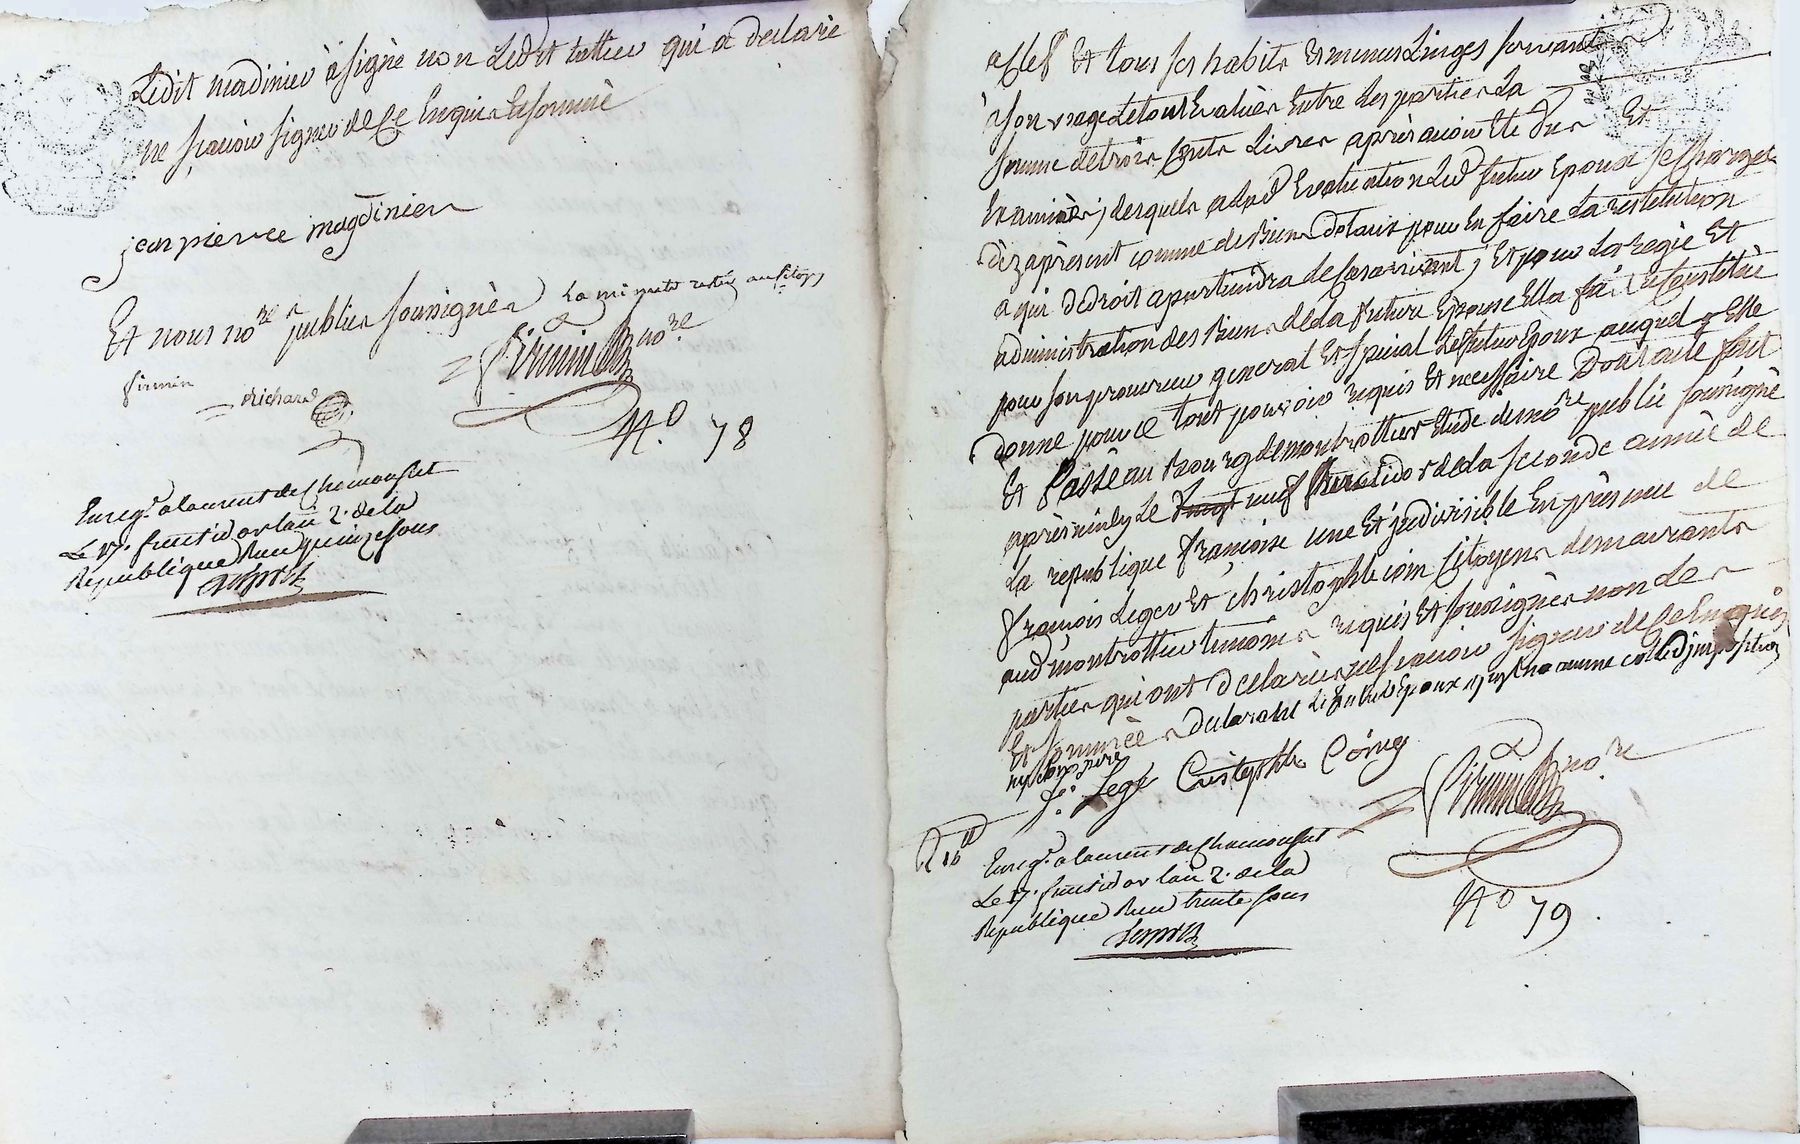 Ledit madinier à signè non Ledit tattier qui a declarè
ne scavoir signer de Ce Enquis Et sommè
jean pierre magdinier
Et nous no.re publier soussignèr La minute restée au citoyen
firmin
Richard
firmin no.re
N.o 78
Enreg.é a laurent de Chamousset
Le 17. fructidor lan 2. de la
Republique Recu quinze sous
a Clef Et tous ses habits Et menus Linges servant
à son usage Le tout Evaluèr Entre Les partier La
somme de trois Cents Livres après avoir Ete vus Et
Examinèr, desquels a lad Evaluation Led futur Epoux se Charge
dèz aprèsent comme des biens dotaux pour En faire La restitution
a qui de droit apartiendra le Cas arrivant, Et pour La regie Et
administration des biens de La future Epouse Elle fait Et Constituè
pour son procureur general Et special Le futur Epoux auquel Elle
donne pour ce tout pouvoir requis Et necessaire Dont acte fait
Et Passè au bourg de montrottier Etude de no.re publie soussignè
après midy Le neuf Fructidor de La seconde annèe de
La republique françoise une Et indivisible En prèsence de
François Leger Et christophle coin Citoyens demeurants
aud montrottier temoins requis Et soussignès non Les
parties qui ont declarèr ne scavoir signer de Ce Enquis
Et sommèes Declarant Le futur Epoux
ny son pere
f.s Legé Cristophle Cöing
firmin no.re
N.o 79
Enreg.é a laurent de Chamousset
Le 17. fructidor lan 2. de la
Republique Recu trente sous